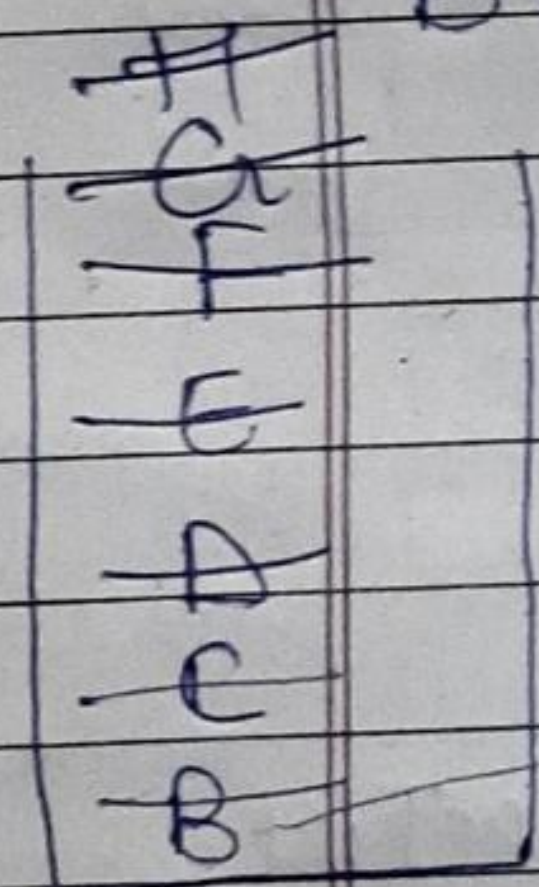 H
G
F
E
D
C
B